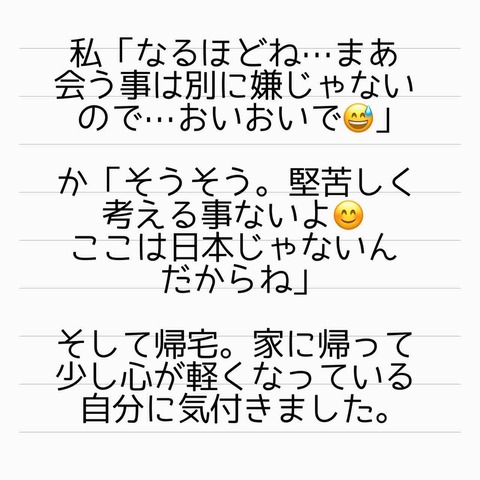 私「なるほどね…まあ
会う事は別に嫌じゃない
ので…おいおいで😅」
か「そうそう。堅苦しく
考える事ないよ😊
ここは日本じゃないん
だからね」
そして帰宅。家に帰って
少し心が軽くなっている
自分に気付きました。